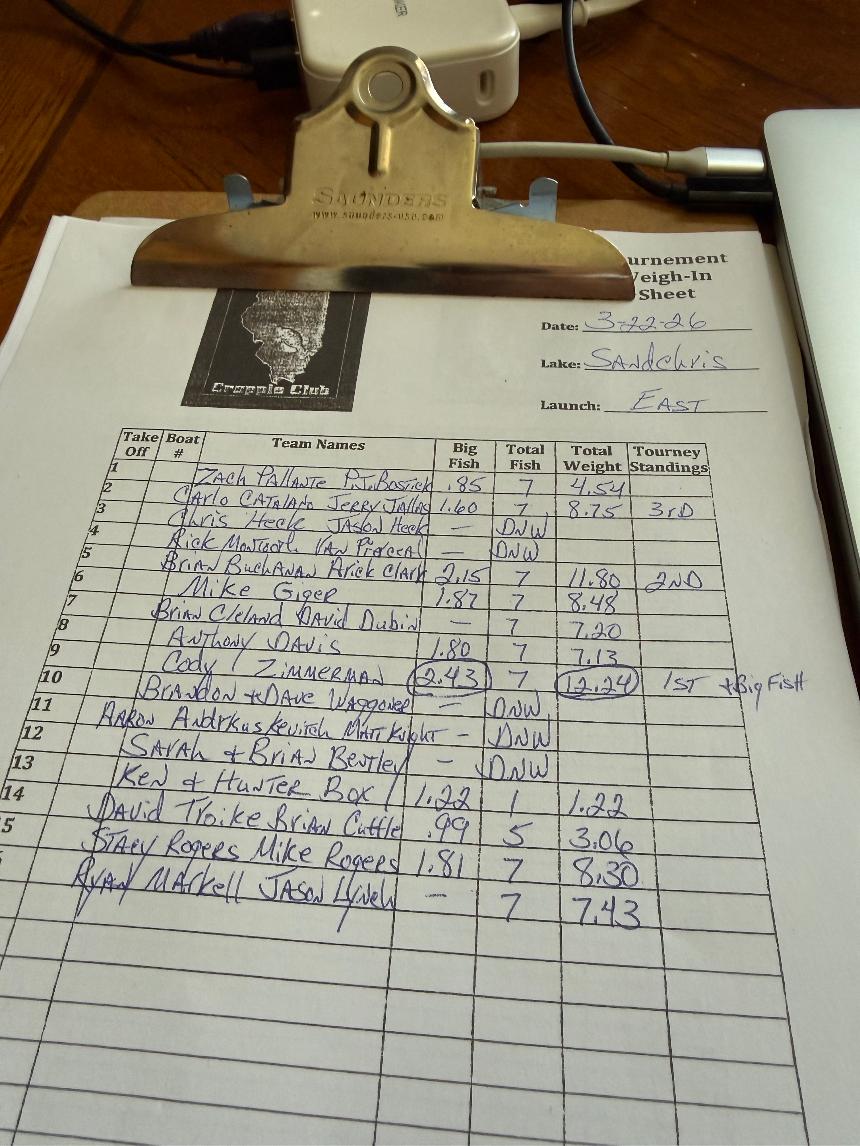 SAUNDERS
www.saunders-usa.com
urnement
eigh-In
Sheet
Date: 3-22-26
Lake: SANdchris
Launch: EAST
Crappie Club
Take Off Boat # Team Names Big Fish Total Fish Total Weight Tourney Standings
1 Zach Pallante P.J. Bostick .85 7 4.54
2 Carlo CATALANO Jerry Jallas 1.60 7 8.75 3rD
3 Chris Heck JASON Heck — DNW
4 Rick Montooth VAN — DNW
5 Brian BuchANAN Arick Clark 2.15 7 11.80 2ND
6 Mike Giger 1.87 7 8.48
7 Brian Cleland David Dubin — 7 7.20
8 ANthony DAVIS 1.80 7 7.13
9 Cody Zimmerman 2.43 7 12.24 1ST + Big Fish
10 BrANdon + DAVE WAggoner — DNW
11 AAroN Andrkuskevitch MATT Knight — DNW
12 SArAh + BriAN BeNtley — DNW
13 KeN + HuNTER Box 1.22 1 1.22
14 DAVID Troike BriAN Cuttle .99 5 3.06
5 STAcy Rogers Mike Rogers 1.81 7 8.30
RyAN MArkell JASON Lynch — 7 7.43